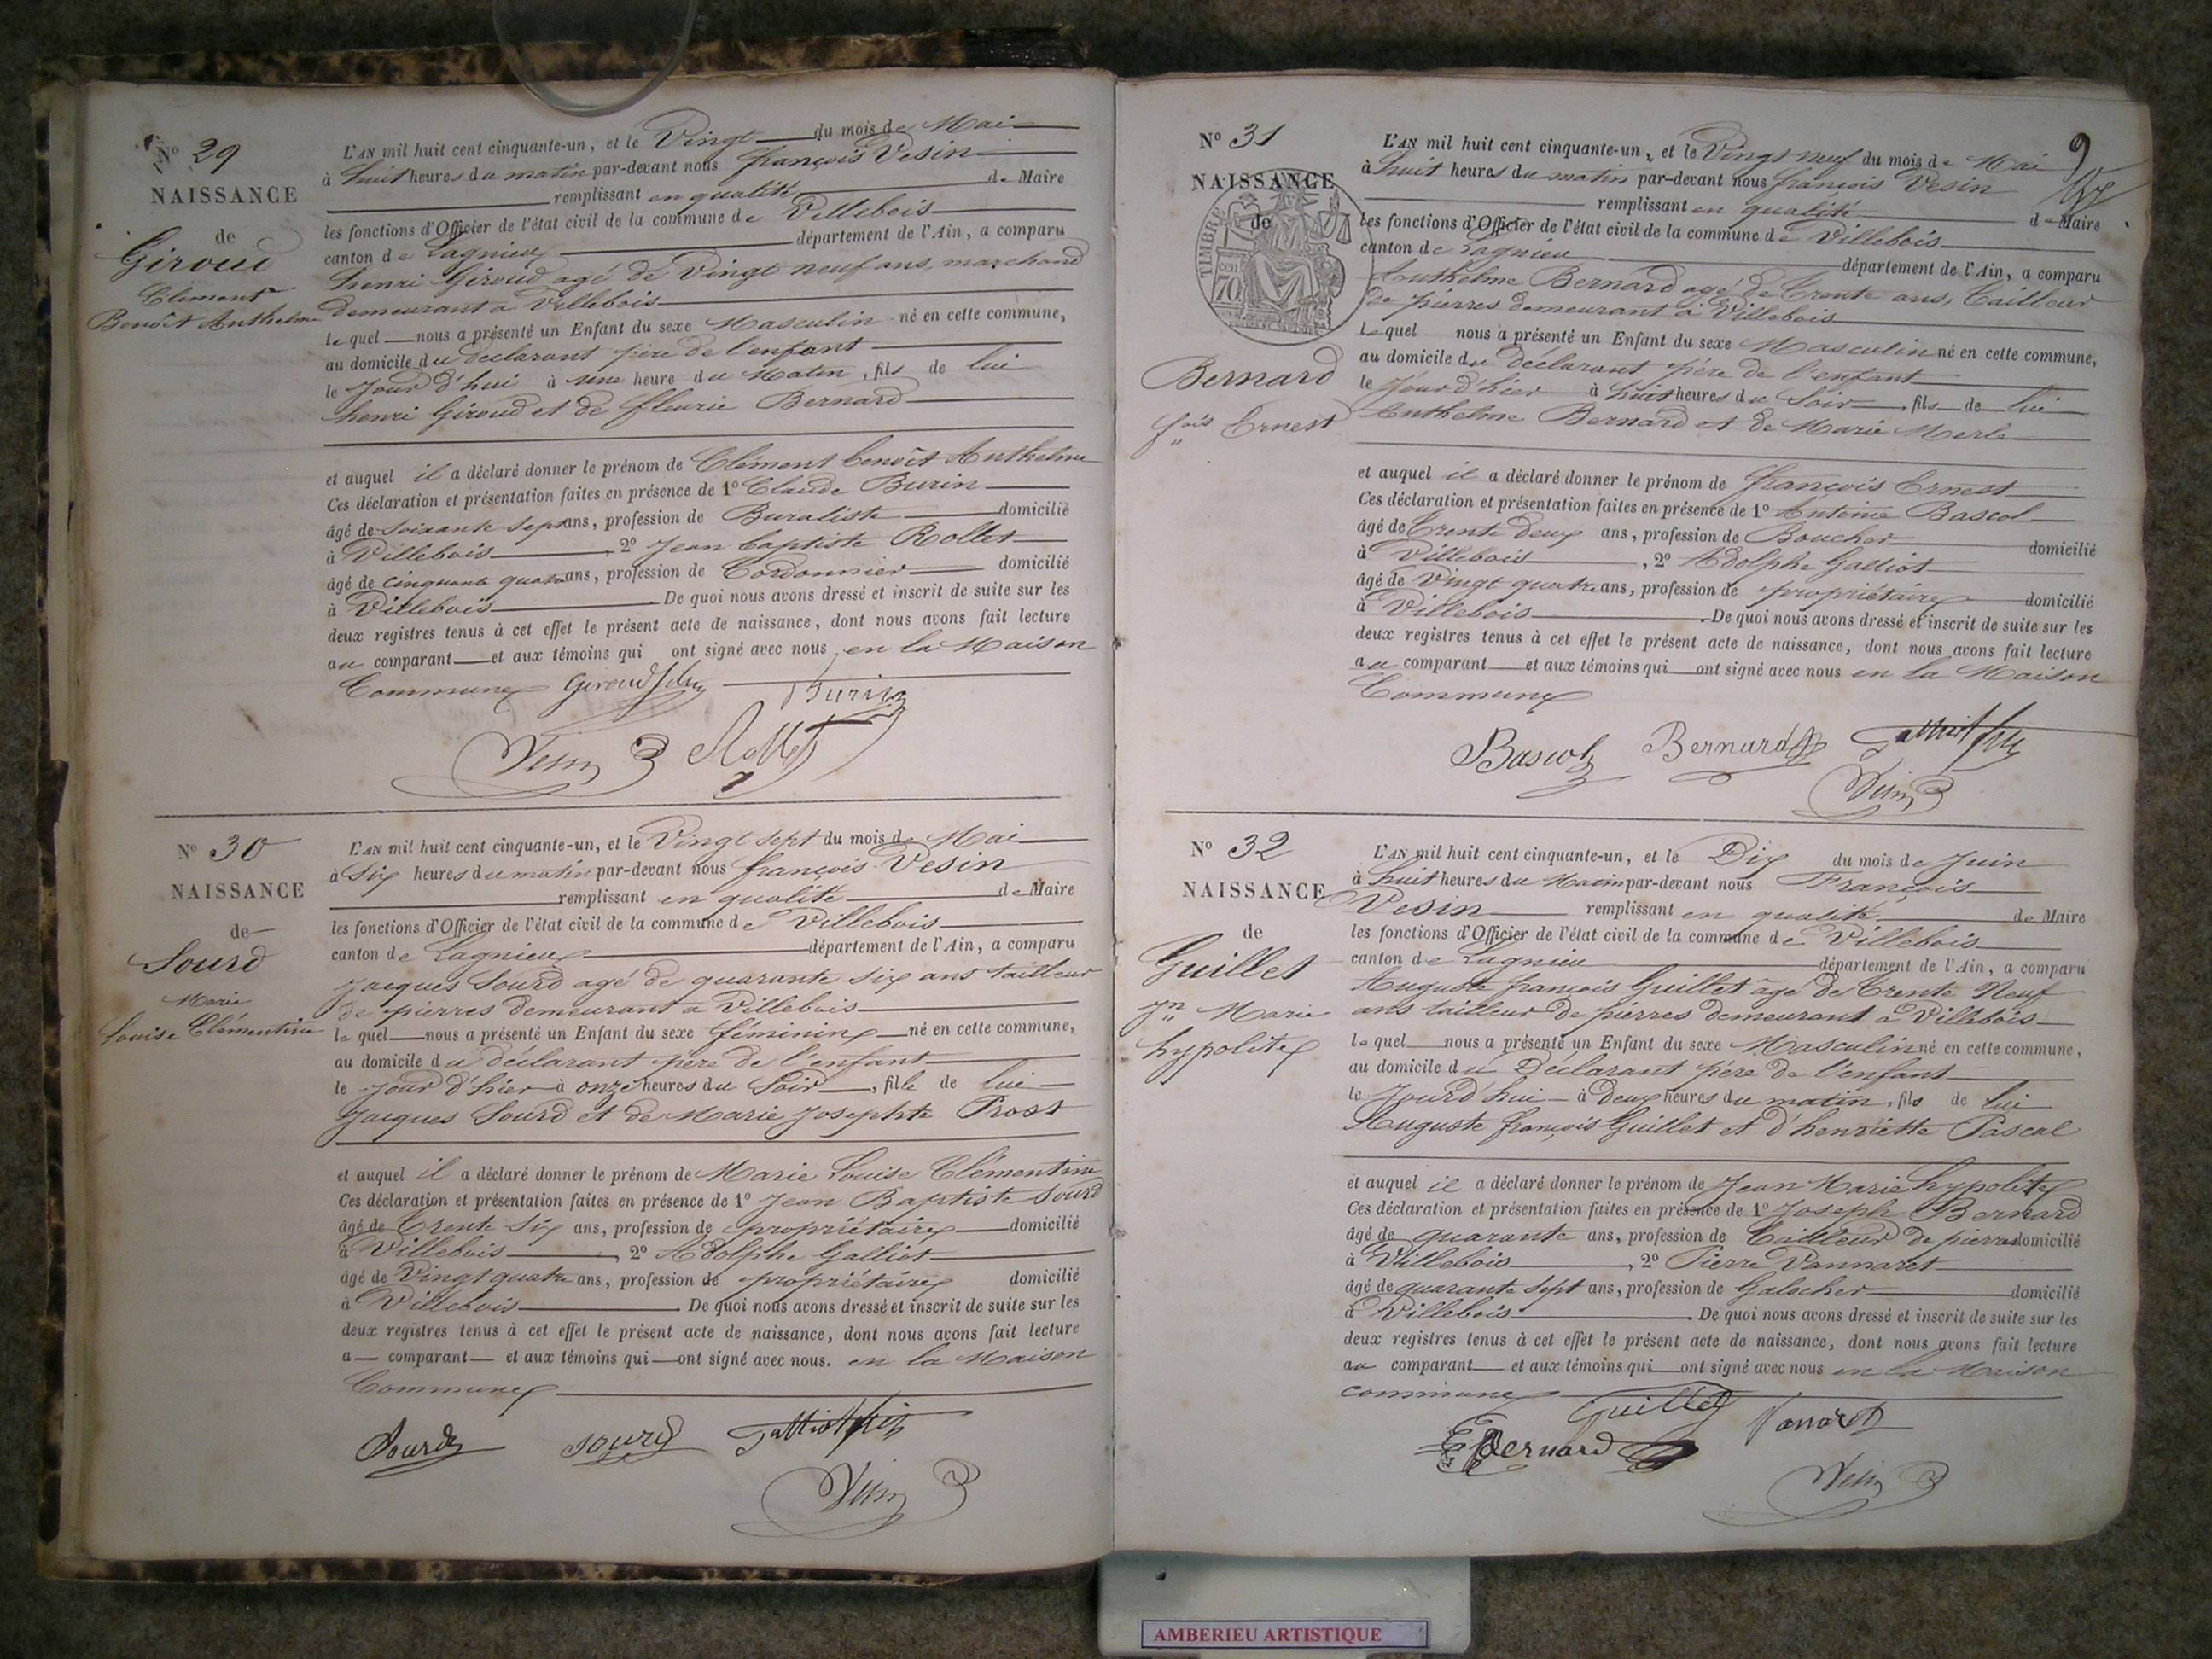 N° 29
NAISSANCE
de
Giroud
Clément
Benoît Anthelme
L'AN mil huit cent cinquante-un, et le Vingt du mois de Mai
à huit heures du matin par-devant nous françois Vesin
remplissant en qualité de Maire
les fonctions d'Officier de l'état civil de la commune de Villebois
canton de Lagnieu département de l'Ain, a comparu
henri Giroud agé de Vingt neuf ans, marchand
demeurant à Villebois
lequel nous a présenté un Enfant du sexe Masculin né en cette commune,
au domicile du déclarant père de l'enfant
le Jour d'hui à une heure du Matin, fils de lui
henri Giroud et de fleurie Bernard
et auquel il a déclaré donner le prénom de Clément benoît Anthelme
Ces déclaration et présentation faites en présence de 1° Claude Burin
âgé de soixante sept ans, profession de Buraliste domicilié
à Villebois, 2° Jean baptiste Rollet
âgé de cinquante quatre ans, profession de Cordonnier domicilié
à Villebois De quoi nous avons dressé et inscrit de suite sur les
deux registres tenus à cet effet le présent acte de naissance, dont nous avons fait lecture
au comparant et aux témoins qui ont signé avec nous en la Maison
Commune Giroud Burin
Vesin Rollet
N° 30
NAISSANCE
de
Sourd
Marie
Louise Clémentine
L'AN mil huit cent cinquante-un, et le Vingt sept du mois de Mai
à Six heures du matin par-devant nous françois Vesin
remplissant en qualité de Maire
les fonctions d'Officier de l'état civil de la commune de Villebois
canton de Lagnieu département de l'Ain, a comparu
Jacques Sourd agé de quarante six ans tailleur
de pierres demeurant à Villebois
lequel nous a présenté un Enfant du sexe féminin né en cette commune,
au domicile du déclarant père de l'enfant
le Jour d'hier à onze heures du Soir, fille de lui
Jacques Sourd et de Marie Josephte Prost
et auquel il a déclaré donner le prénom de Marie Louise Clémentine
Ces déclaration et présentation faites en présence de 1° Jean Baptiste Sourd
âgé de Trente Six ans, profession de propriétaire domicilié
à Villebois, 2° Adolphe Galliot
âgé de Vingt quatre ans, profession de propriétaire domicilié
à Villebois De quoi nous avons dressé et inscrit de suite sur les
deux registres tenus à cet effet le présent acte de naissance, dont nous avons fait lecture
a comparant et aux témoins qui ont signé avec nous. en la Maison
Commune
Sourd Sourd Galliot
Vesin
9
N° 31
NAISSANCE
de
TIMBRE
70
Bernard
fois Ernest
L'AN mil huit cent cinquante-un, et le Vingt neuf du mois de Mai
à huit heures du matin par-devant nous françois Vesin
remplissant en qualité de Maire
les fonctions d'Officier de l'état civil de la commune de Villebois
canton de Lagnieu département de l'Ain, a comparu
Anthelme Bernard agé de Trente ans, Tailleur
de pierres demeurant à Villebois
lequel nous a présenté un Enfant du sexe Masculin né en cette commune,
au domicile du déclarant père de l'enfant
le Jour d'hier à huit heures du Soir, fils de lui
Anthelme Bernard et de Marie Merle
et auquel il a déclaré donner le prénom de françois Ernest
Ces déclaration et présentation faites en présence de 1° Antoine Bascol
âgé de Trente deux ans, profession de Boucher domicilié
à Villebois, 2° Adolphe Galliot
âgé de Vingt quatre ans, profession de propriétaire domicilié
à Villebois De quoi nous avons dressé et inscrit de suite sur les
deux registres tenus à cet effet le présent acte de naissance, dont nous avons fait lecture
au comparant et aux témoins qui ont signé avec nous en la Maison
Commune
Bascol Bernard Galliot
Vesin
N° 32
NAISSANCE
de
Guillet
Jn Marie
hypolite
L'AN mil huit cent cinquante-un, et le Dix du mois de Juin
à huit heures du Matin par-devant nous François
Vesin remplissant en qualité de Maire
les fonctions d'Officier de l'état civil de la commune de Villebois
canton de Lagnieu département de l'Ain, a comparu
Auguste françois Guillet âgé de Trente Neuf
ans tailleur de pierres demeurant à Villebois
lequel nous a présenté un Enfant du sexe Masculin né en cette commune,
au domicile du Déclarant père de l'enfant
le Jourd'hui à Deux heures du matin, fils de lui
Auguste françois Guillet et d'henriette Pascal
et auquel il a déclaré donner le prénom de Jean Marie hypolite
Ces déclaration et présentation faites en présence de 1° Joseph Bernard
âgé de quarante ans, profession de Tailleur de pierres domicilié
à Villebois, 2° Pierre Vannaret
âgé de quarante sept ans, profession de Galocher domicilié
à Villebois De quoi nous avons dressé et inscrit de suite sur les
deux registres tenus à cet effet le présent acte de naissance, dont nous avons fait lecture
au comparant et aux témoins qui ont signé avec nous en la Maison
commune
Guillet Vannaret
Bernard
Vesin
AMBERIEU ARTISTIQUE